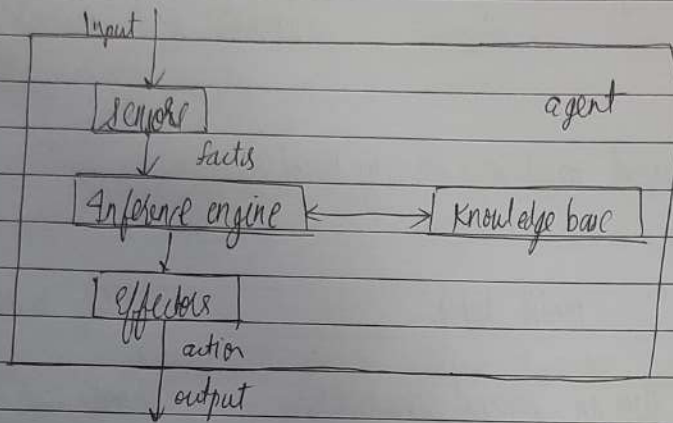 Input
sensors
agent
facts
Inference engine
Knowledge base
effectors
action
output